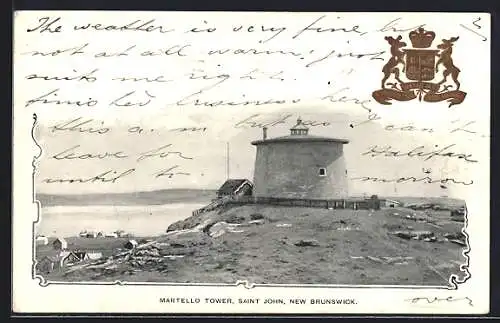 The weather is very fine, but
not at all warm, just
suits me right.
finished business here
this a. m but can't
leave for Halifax
until to morrow
MARTELLO TOWER, SAINT JOHN, NEW BRUNSWICK.
over